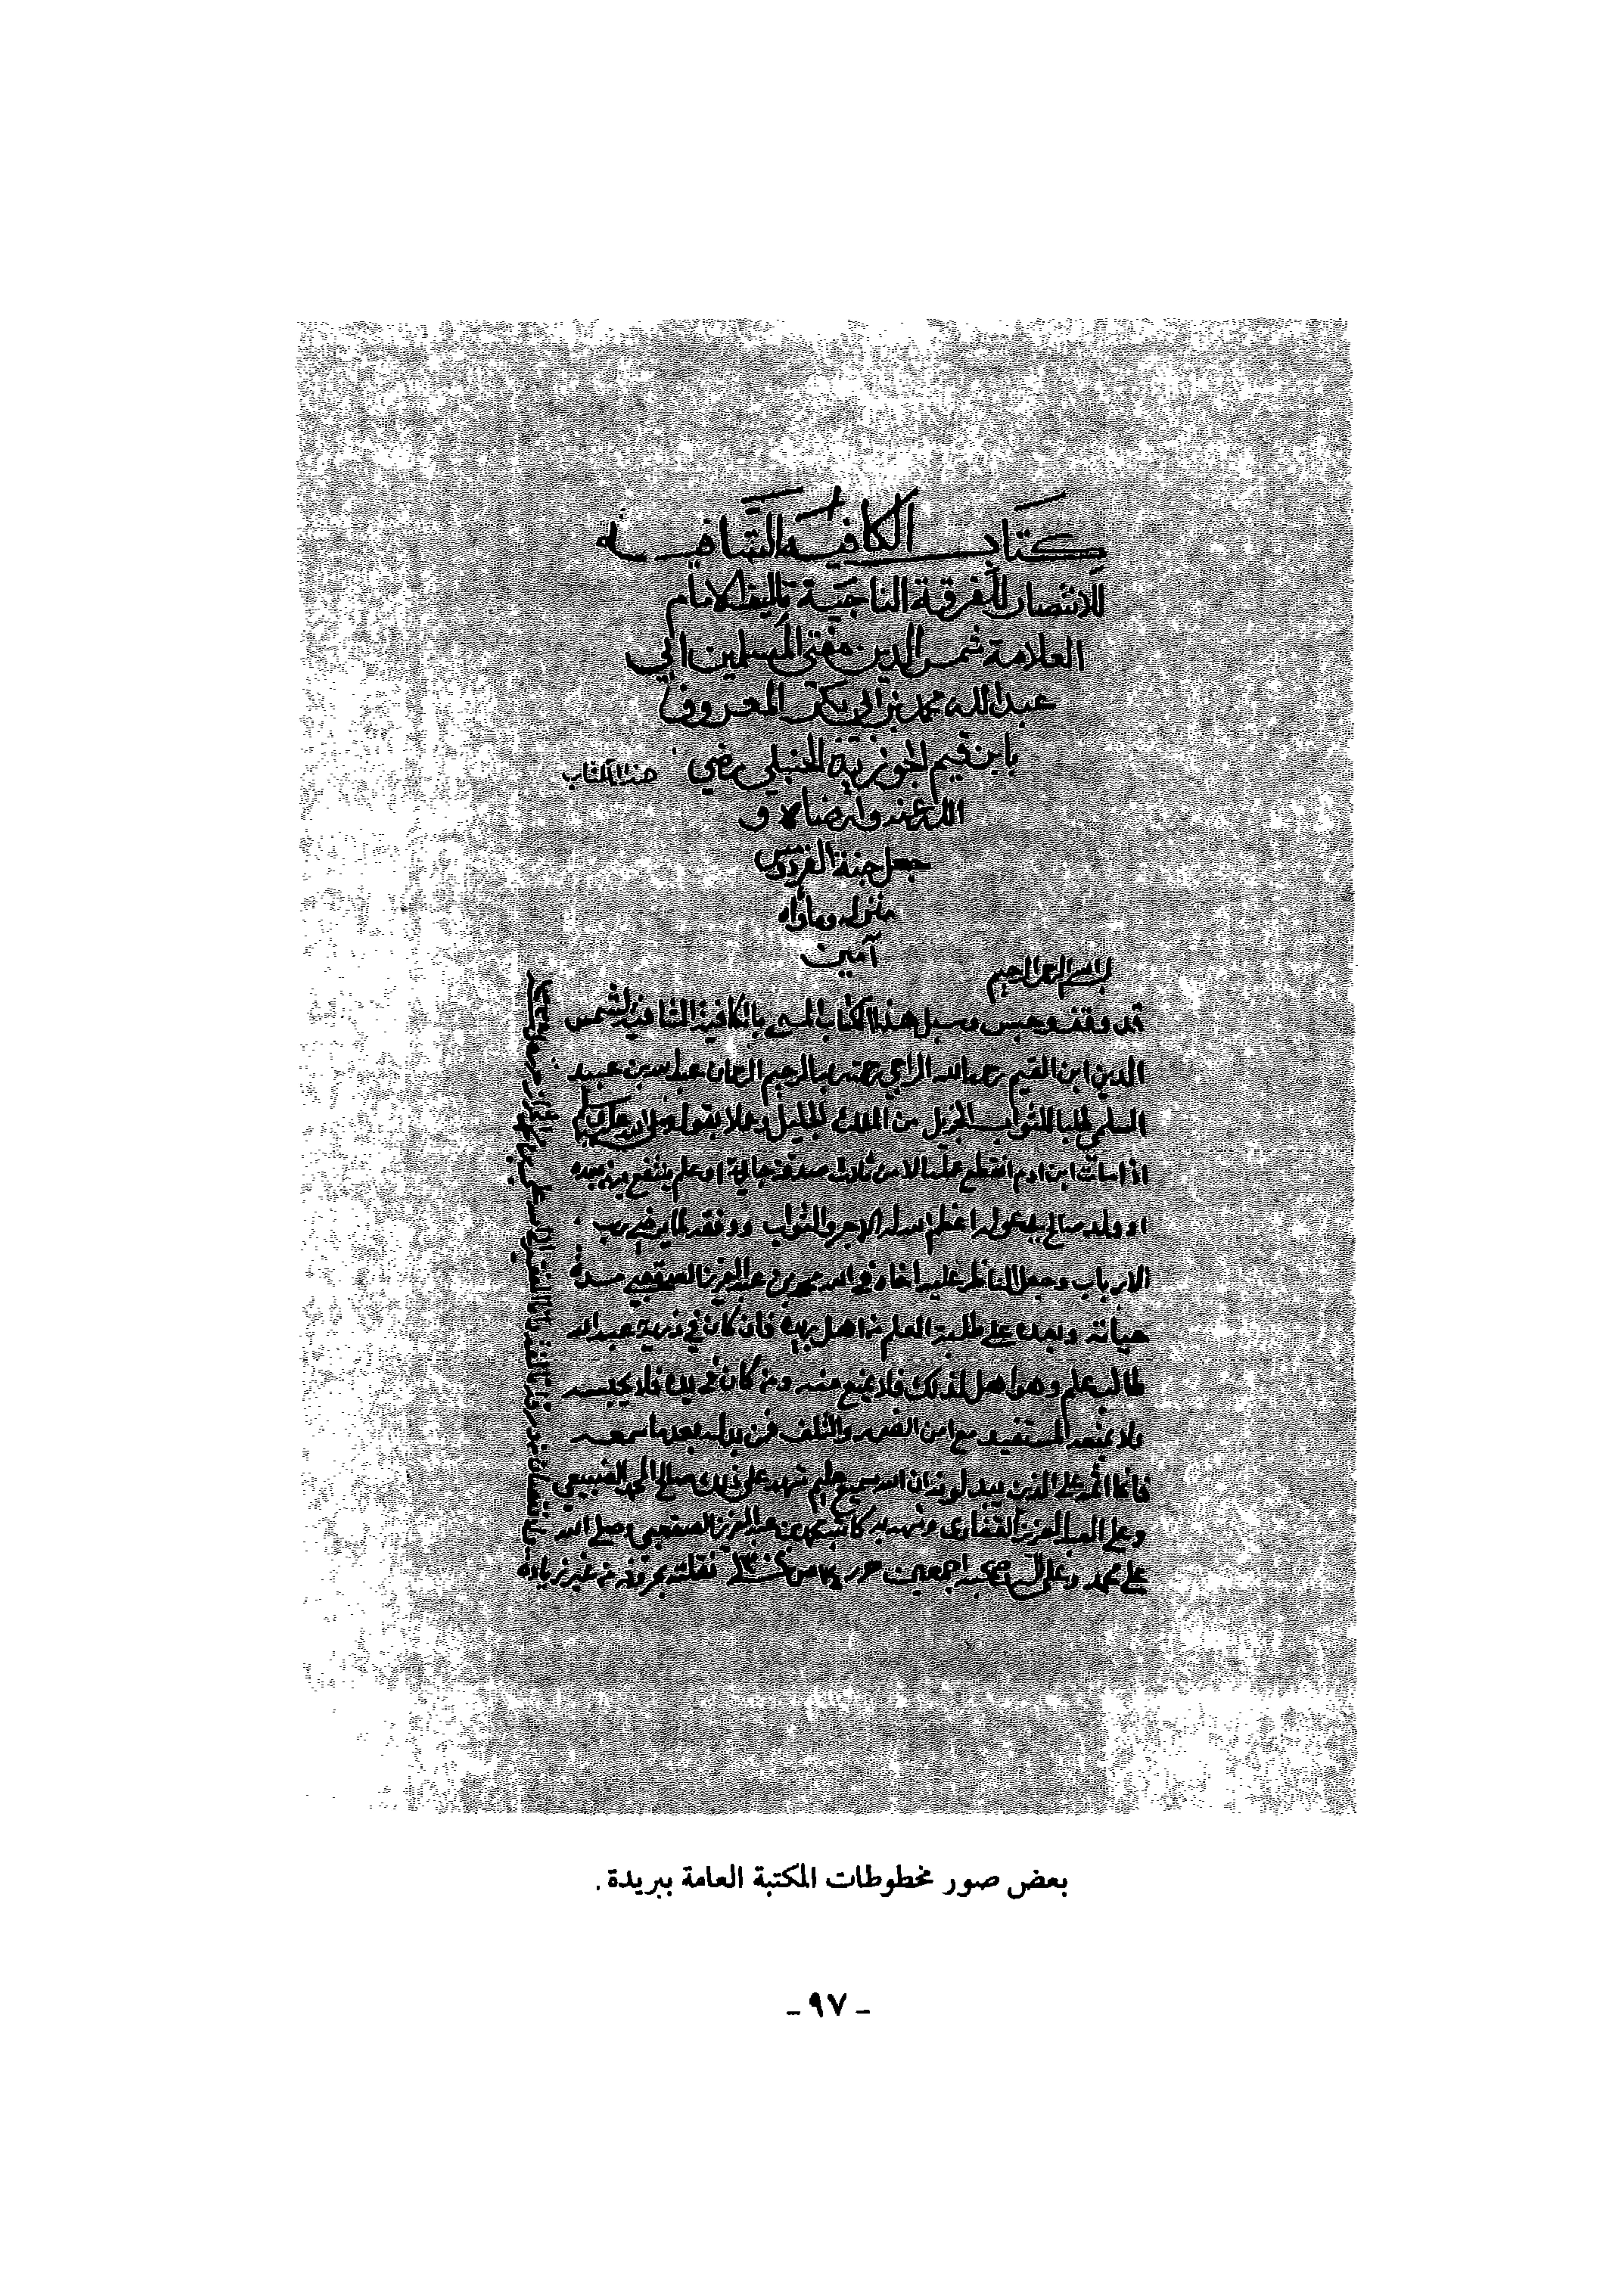 كتاب الكافية الشافية
للانتصار للفرقة الناجية تاليف الامام
العلامة شمس الدين مفتي المسلمين ابي
عبد الله محمد بن ابي بكر المعروف
بابن قيم الجوزية الحنبلي رضي
هذا الكتاب
الله عنه وارضاه و
جعل جنة الفردوس
منزله وماواه
آمين
بسم الله الرحمن الرحيم
قد وقف وحبس وسبل هذا الكتاب المسمى بالكافية الشافية لشمس
الدين ابن القيم رحمه الله الراجي رحمة ربه الرحيم الرحمان عبد الله بن عبيد
السلمي طلبا للثواب الجزيل من الملك الجليل وعملا بقوله صلى الله عليه وسلم
اذا مات ابن ادم انقطع عمله الا من ثلاث صدقة جارية او علم ينتفع به من بعده
او ولد صالح يدعو له اعظم الله له الاجر والثواب ووفقه لما يرضي رب
الارباب وجعل الناظر عليه اخاه في الله محمد بن عبد العزيز الصقعبي مدة
حياته وبعده على طلبة العلم من اهل بريدة فان كان في ذرية عبد الله
طالب علم وهو اهل لذلك فلا يمنع منه ومن كان في يده فلا يحبسه
ولا يمنعه المستفيد مع امن الضرر والتلف فمن بدله بعد ما سمعه
فانما اثمه على الذين يبدلونه ان الله سميع عليم شهد على ذلك صالح
وعلي العبد العزيز وشهد به كاتبه محمد بن عبد العزيز الصقعبي وصلى الله
على محمد وعلى اله وصحبه اجمعين نقلته بحروفه من غير زيادة
بعض صور مخطوطات المكتبة العامة ببريدة .
- ٩٧ -